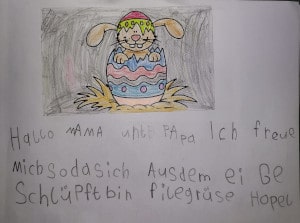 Hallo MAMA unt PAPa Ich freue
Michsodasich Ausdem ei Ge
SchlüPftbin filegrüse Hopel